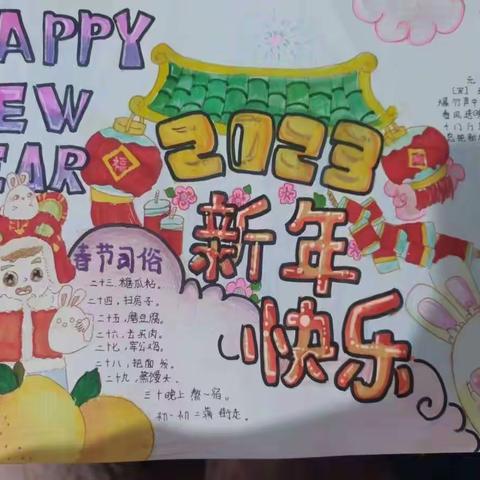 HAPPY
NEW
YEAR
2023
新年
快乐
福
春节习俗
二十三,糖瓜粘。
二十四,扫房子。
二十五,磨豆腐。
二十六,去买肉。
二十七,宰公鸡。
二十八,把面发。
二十九,蒸馒头。
三十晚上熬一宿。
初一初二满街走。
元
[宋]
爆竹声中
春风送暖
千门万
总把新